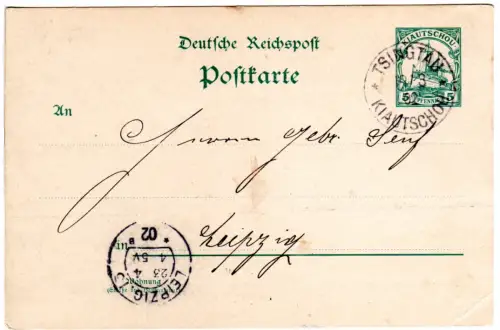 KIAUTSCHOU
5 PFENNIG 5
Deutsche Reichspost
Postkarte
TSINGTAU
KIAUTSCHOU
An
Herrn Gebr. Senf
in
Leipzig
Wohnung
LEIPZIG
23 4
4-5V
02